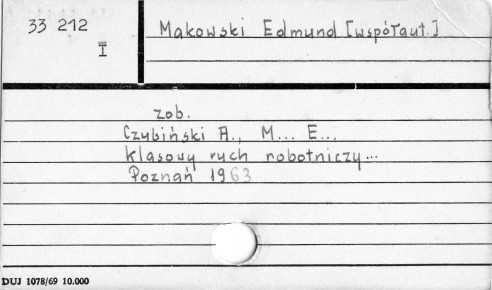 33 212
I
Mąkowski Edmund [współaut.]
zob.
Czubiński A., M... E...
Klasowy ruch robotniczy...
Poznań 1963
DUJ 1078/69 10.000